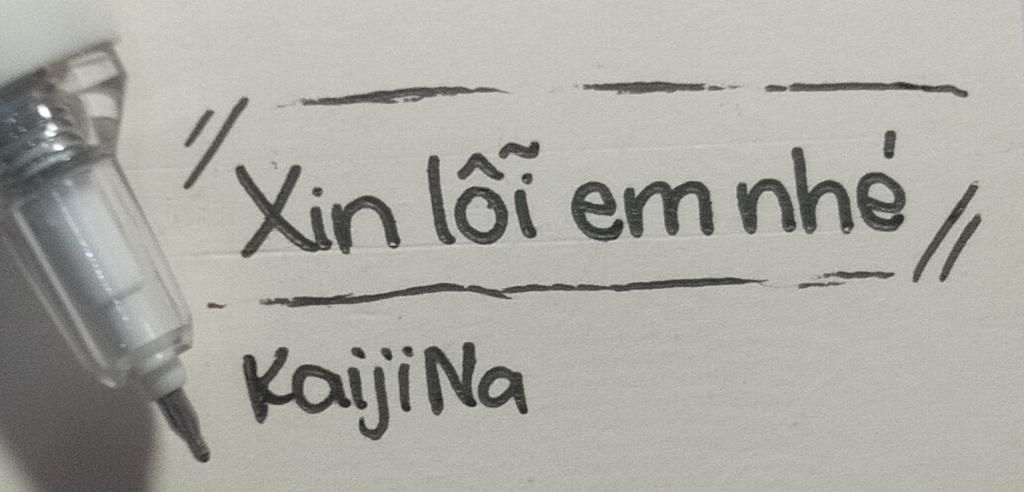 Xin lỗi em nhé
KaijiNa